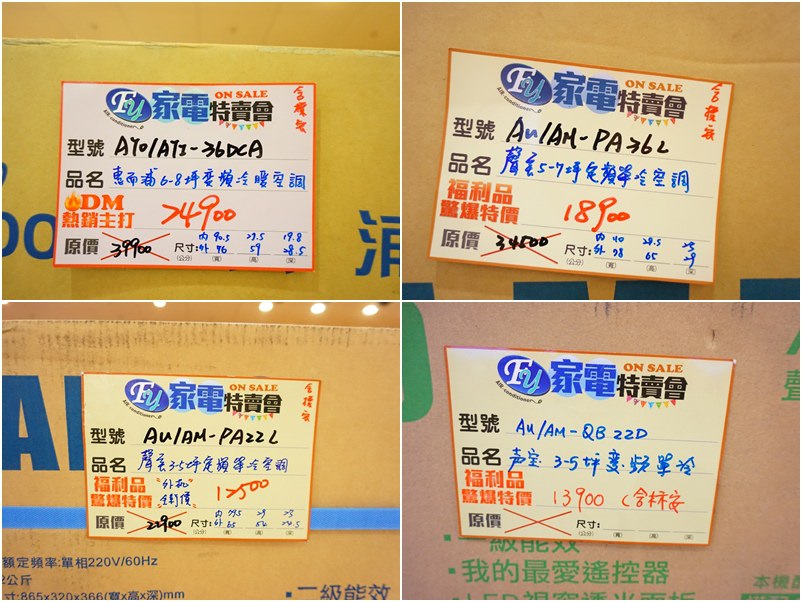 ON SALE
FU 家電特賣會
Air conditioner
含標安
型號 AYO/AYI-36DCA
品名 惠而浦6-8坪變頻冷暖空調
DM
熱銷主打 24900
原價 39900 尺寸: 內 90.5 29.5 19.8
外 96 59 28.5
(公分) (寬) (高) (深)
消
ON SALE
FU 家電特賣會
Air conditioner
含標安
型號 AU/AM-PA36L
品名 聲宝5-7坪定頻單冷空調
福利品
驚爆特價 18900
原價 34500 尺寸: 內 90 28.5 23
外 98 65 29
(公分) (寬) (高) (深)
ON SALE
FU 家電特賣會
Air conditioner
含標安
型號 AU/AM-PA22L
品名 聲宝3-5坪定頻單冷空調
福利品 "外机
驚爆特價 12500
原價 22900 尺寸: 內 79.5 29 23
外 65 54 24.5
(公分) (寬) (高) (深)
額定頻率:單相220V/60Hz
2公斤
寸:865x320x366(寬x高x深)mm
二級能效
ON SALE
FU 家電特賣會
Air conditioner
型號 AU/AM-QB22D
品名 声宝 3-5坪变頻單冷
福利品
驚爆特價 13900 (含标安
原價 尺寸:
(公分) (寬) (高) (深)
二級能效
·我的最愛遙控器
·LED視窗透光面板
本機